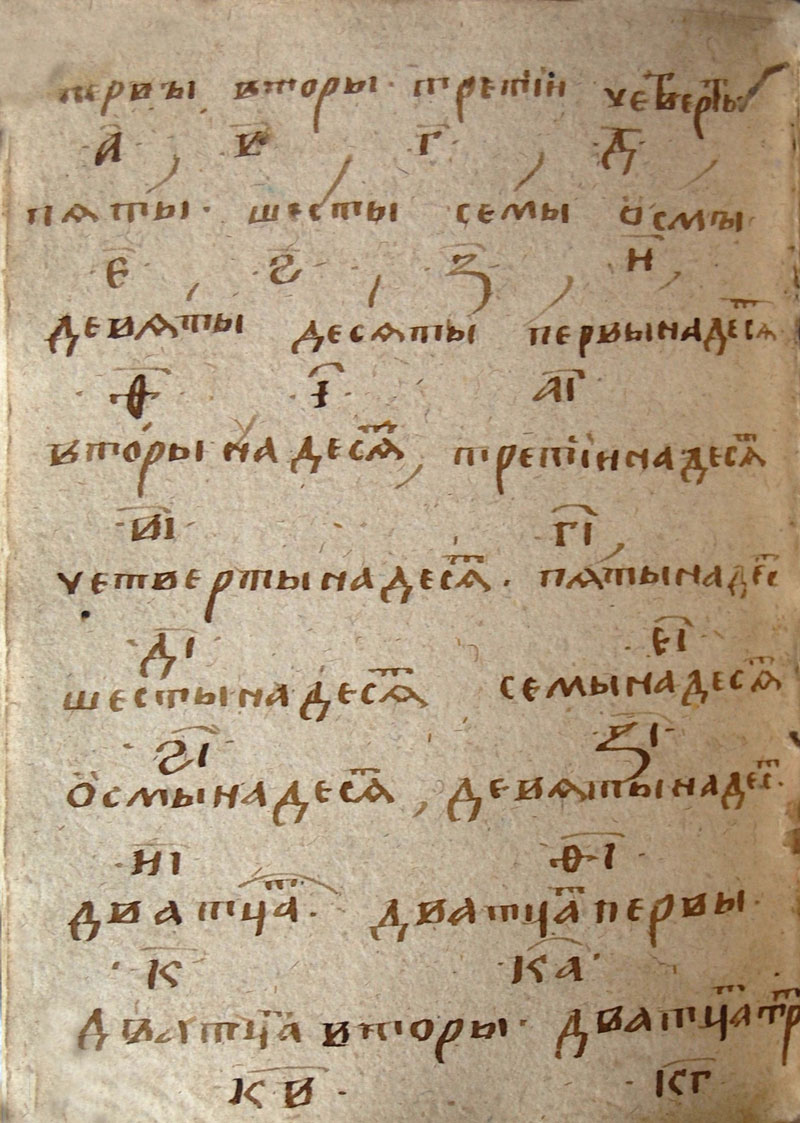 первы вторы· третїи четверты
·А҃· ·В҃· ·Г҃· ·Д҃·
пѧты· шесты семы осмы·
·Є҃· ·Ѕ҃· ·З҃· ·И҃·
девѧты десѧты первынадесѧт
·Ѳ҃· ·І҃· АІ҃·
вторынадесѧт, третїинадесѧт
·ВІ҃ ·ГІ҃,
четвертынадесѧт· пѧтынадес
·ДІ҃ ·ЄІ҃·
шестынадесѧт семынадесѧт
·ЅІ҃ ·ЗІ҃·
осмынадесѧт, девѧтынадес·
·ИІ҃ ·ѲІ҃
дватцат· дватцатпервы·
·К҃ ·КА҃·
дватцатвторы· дватцаттр
·КВ҃· ·КГ҃